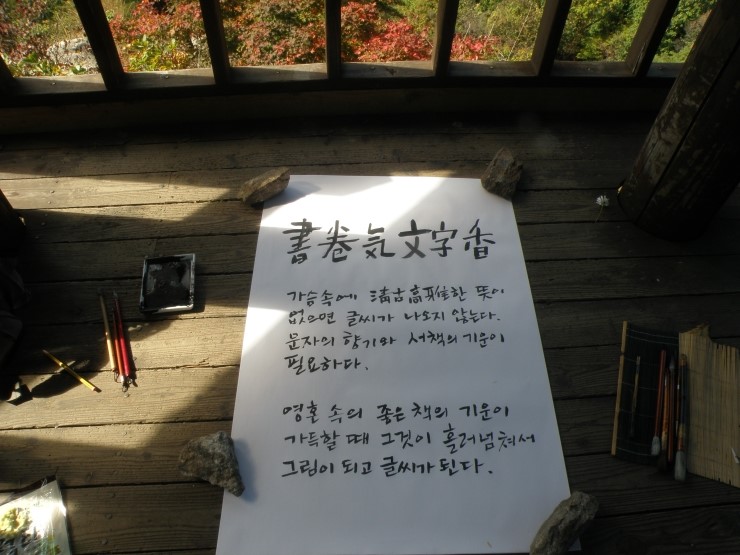 書卷气文字香
가슴속에 淸古高雅한 뜻이
없으면 글씨가 나오지 않는다.
문자의 향기와 서책의 기운이
필요하다.
영혼 속의 좋은 책의 기운이
가득할 때 그것이 흘러넘쳐서
그림이 되고 글씨가 된다.